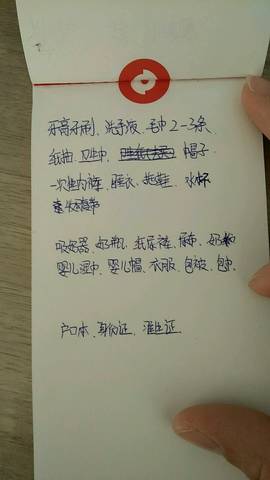 牙膏牙刷、洗手液、毛巾2-3条、
纸抽、卫生巾、帽子
一次性内裤、睡衣、拖鞋、水杯
吸奶器、奶瓶、纸尿裤、尿布、奶粉
婴儿湿巾、婴儿帽、衣服、包被、包巾、
户口本、身份证、准生证